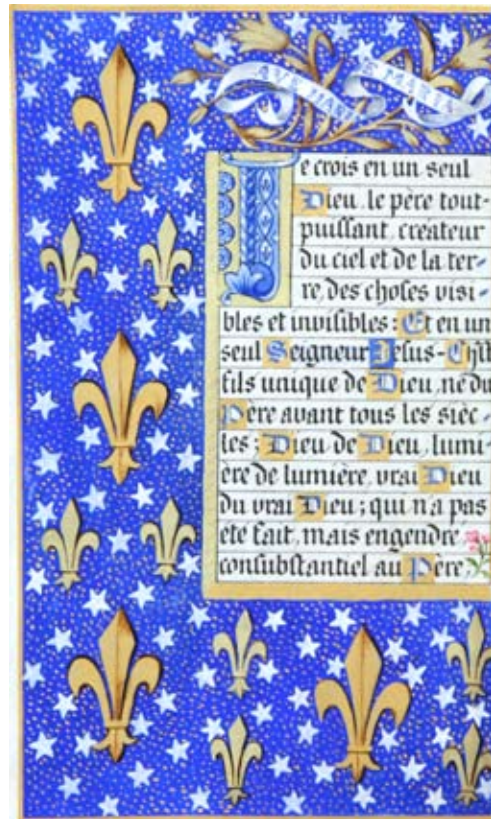 AVE MARIA
E MARIA
Je crois en un seul
Dieu, le père tout-
puissant, créateur
du ciel et de la ter-
re, des choses visi-
bles et invisibles: Et en un
seul Seigneur Jesus-Chist
fils unique de Dieu, né du
Père avant tous les sièc-
les; Dieu de Dieu, lumi-
ère de lumière, vrai Dieu
du vrai Dieu; qui n'a pas
été fait, mais engendre
consubstantiel au Père,